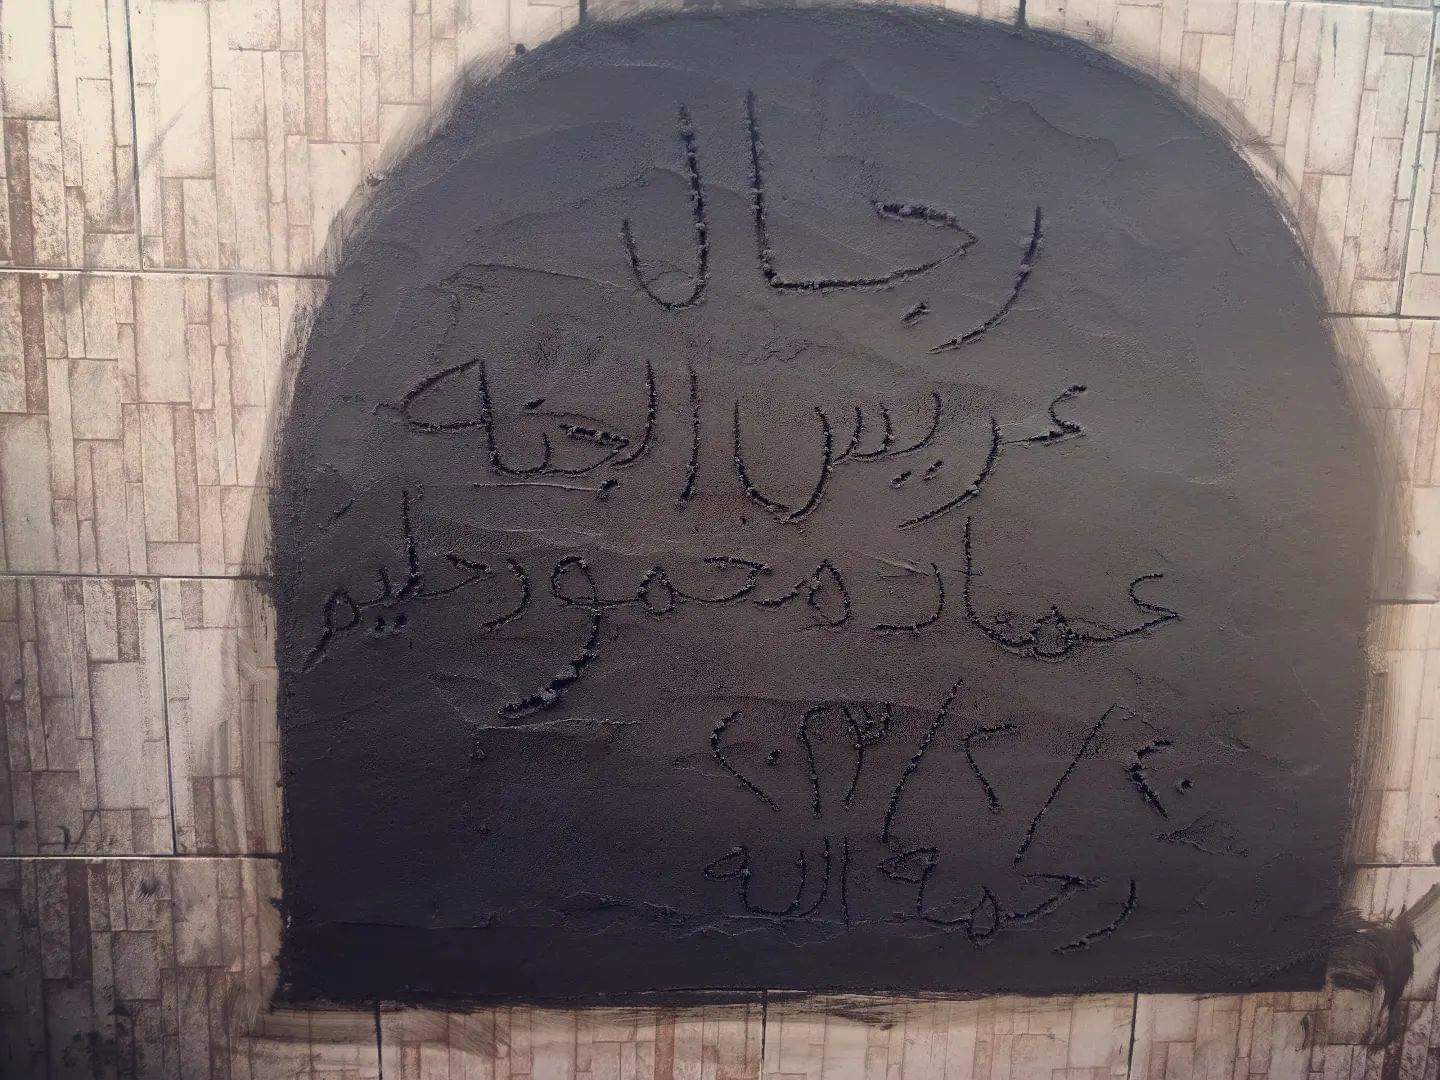 رجال
عريس الجنه
عماد محمود حليم
٢٠٢٣/٢/٢٠
رحمة الله